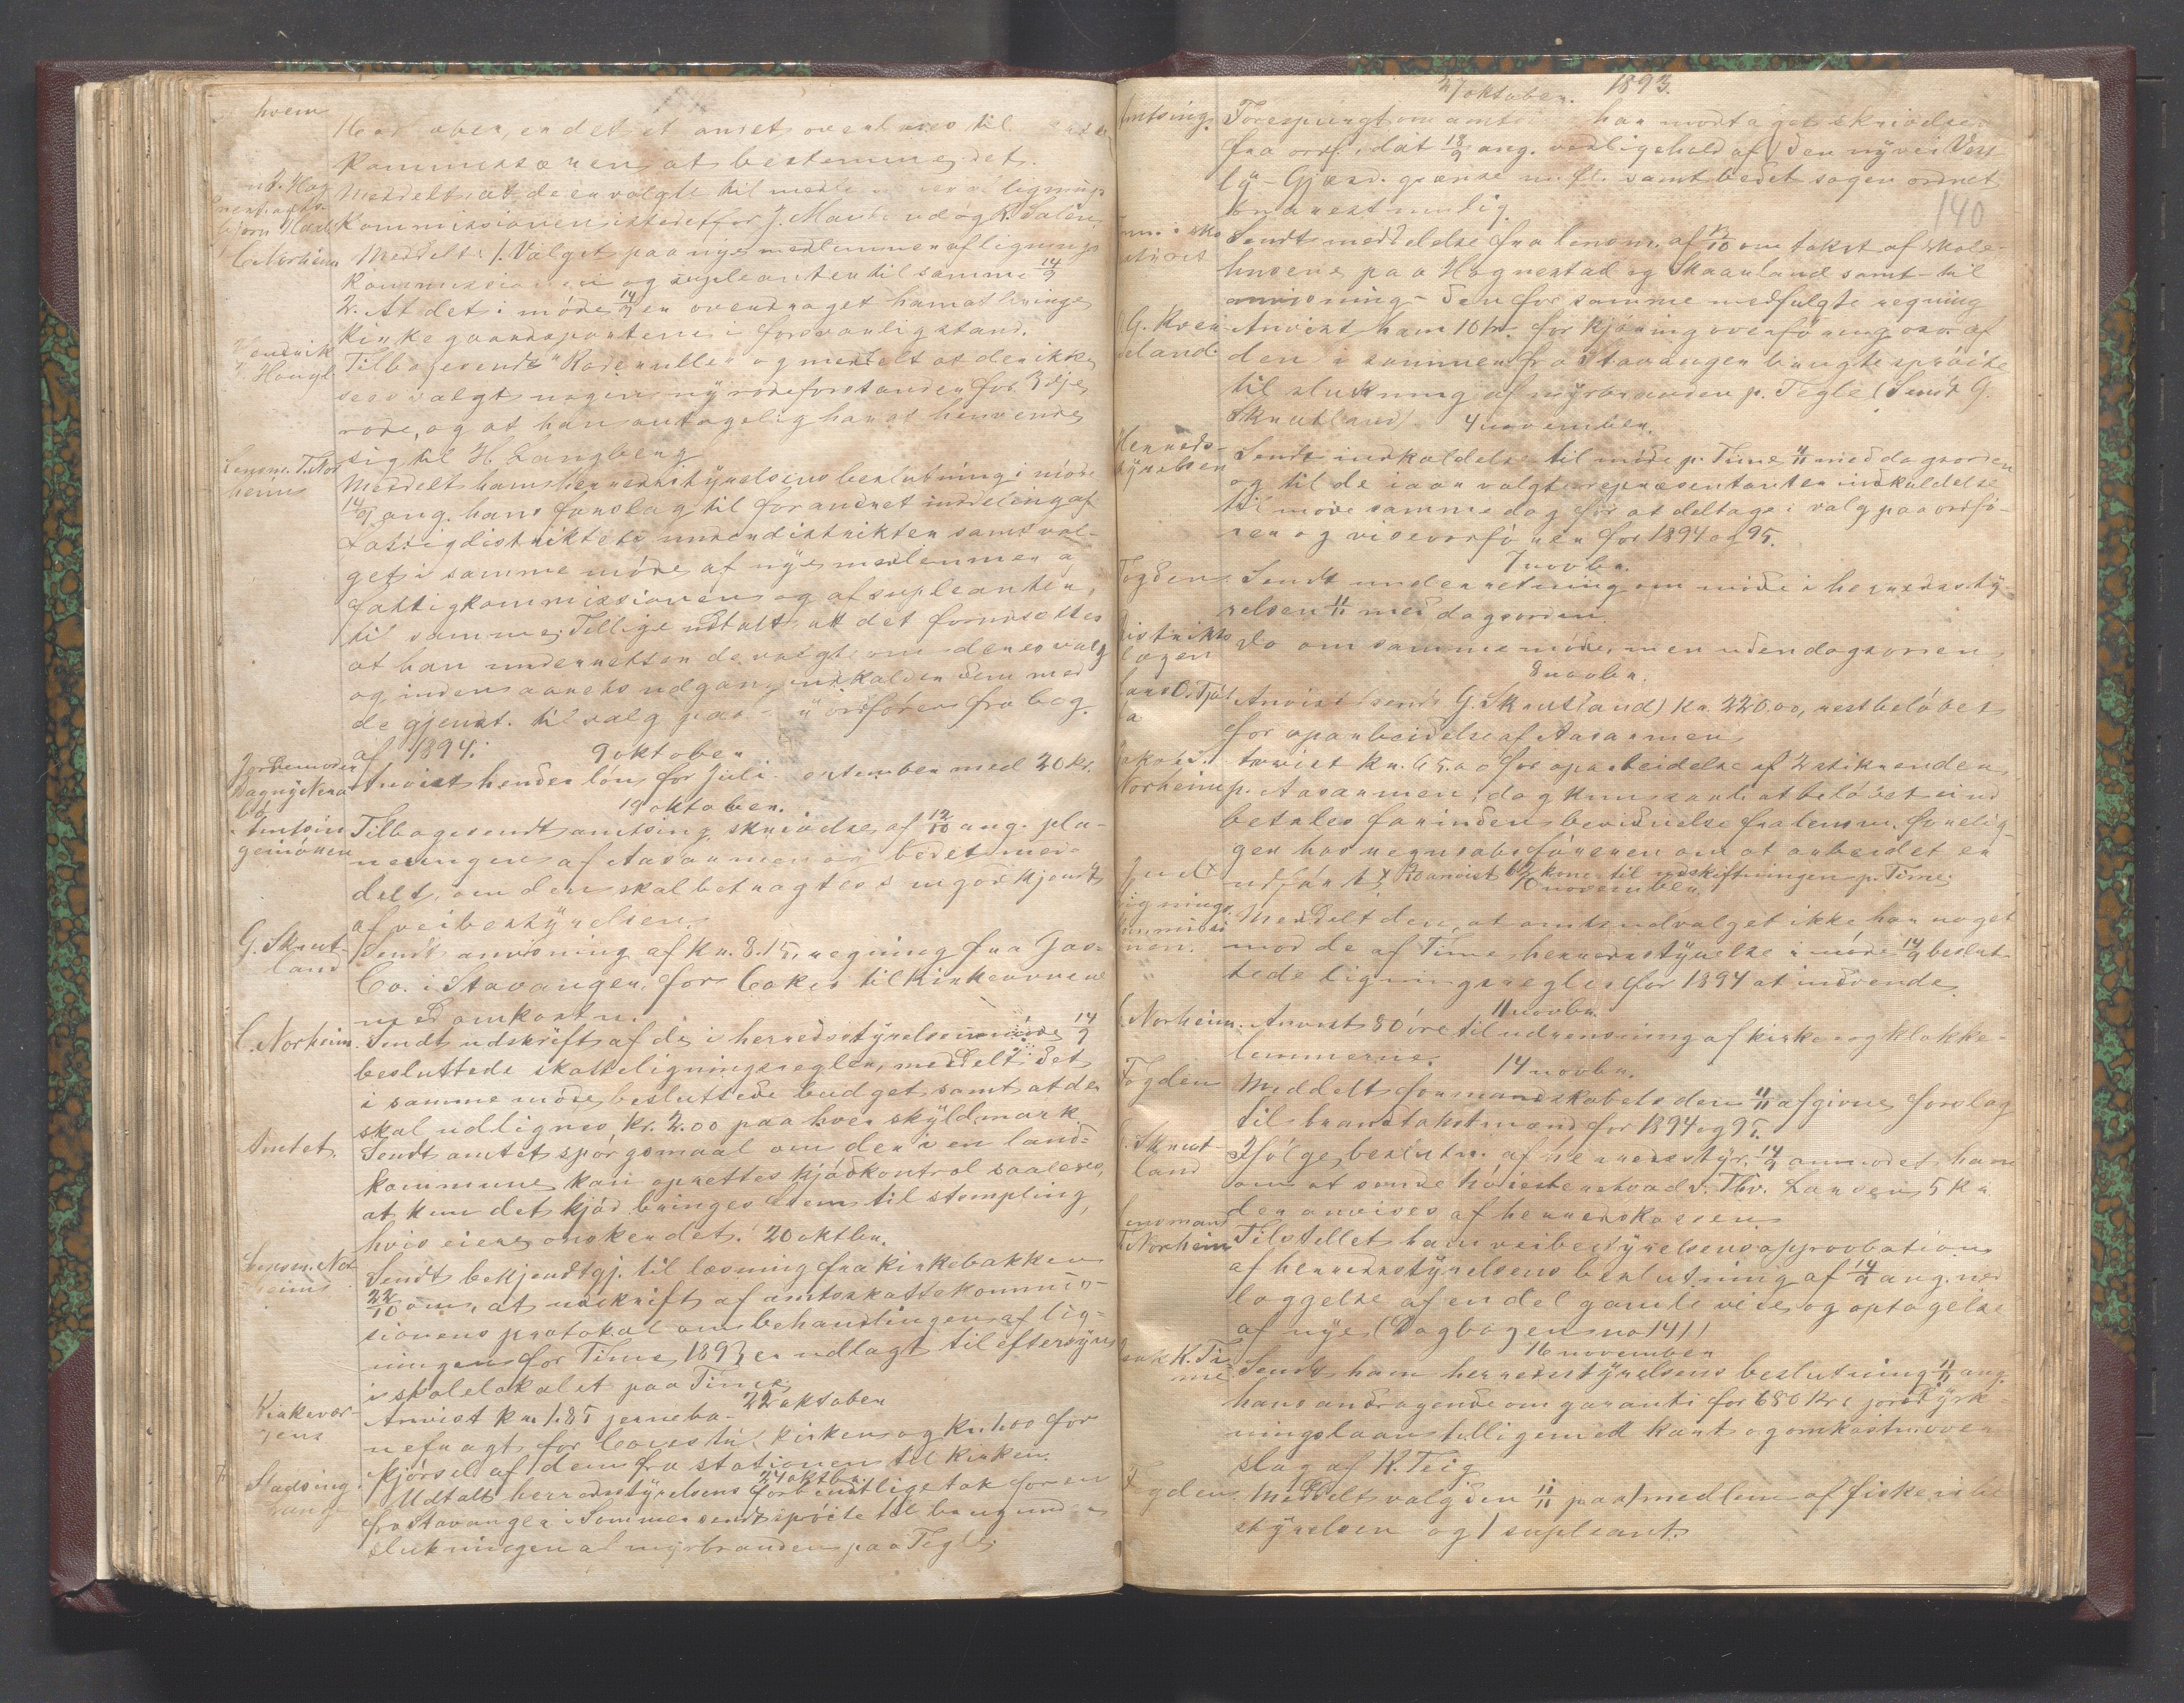 hvem
16 oktober, er det et overladt til
Kommissæren at bestemme det.
Meddelt at de er valgte til medl lignings
Kommissionen istedetfor J. Maul og R. Salin.
C. Norheim Meddelt: 1. Valget paa nye medlemmer af lignings
Kommissionen og supleanter til samme 14/9
2. At det i møde 14/9 er overdraget ham at bringe
Kirkegaardsporten i forsvarlig stand.
Tilbagesendt "Roderullen" og meddelt at der ikke
sees valgt nogen ny rodeforstander for 3dje
rode, og at han antagelig har at henvende
sig til H. Langberg
Lensm. T. Nor
heim
Meddelt ham herredsstyrelsens beslutning i møde
14/9 ang. hans forslag til forandret inddeling af
Fattigdistriktets underdistrikter samt val-
get i samme møde af nye medlemmer a
fattigkommissionen og af supleanter,
til samme. Tillige udtalt at det forudsættes
at han underretter de valgte om deres valg
og inden aarets udgang indkalder dem med
de gjenst. til valg paa ordfører fra beg.
af 1894.
9 oktober
Jordemoder
Dagny Nera
bø
Anvist hende løn for Juli- september med 20 kr.
19 oktober.
Amtsin
geniøren
Tilbagesendt amtsing. skrivelse af 12/10 ang. pla-
neringen af Aasarmen og bedet med-
delt, om den skal betragtes s ingod kjendt
af veibestyrelsen.
G. Skrut-
land
Sendt anvisning af Kr. 8.15, regning fra Gas-
Co. i Stavanger. for Cokes til Kirkeovnene
med omkostn.
C. Norheim Sendt udskrift af de i herredsstyrelsen møde 14/9
besluttede skatteligningsregler, meddelt det
i samme møde besluttede budget samt at der
skal udlignes, Kr. 2.00 paa hver skyldmark.
Amtet. Sendt amtet spørgsmaal om der i en land-
kommune kan oprettes kjødkontrol saaledes,
at kun det kjød bringes til stempling,
hvis eiere ønsker det. 20 oktbr.
Lensm. Nor
heim
Sendt bekjendtgj. til læsning fra kirkebakken
22/10 om, at udskrift af amtsskattekommis-
sionens protokol om behandlingen af lig-
ningen for Time 1893 er udlagt til eftersyn
i skolelokalet paa Time.
22 oktober
Kirkever-
gen
Anvist Kr 1.85 jerneba-
nefragt for Cokes til kirken og Kr. 1.00 for
kjørsel af dem fra stationen til kirken.
24 oktbr.
Stadsing.
Udtalt herredsstyrelsens forbindtlige tak for en
fra Stavanger i Sommer sendt sprøite til brug under
slukningen af myrbranden paa Tegle.
27 oktober. 1893.
140
Amtsing. Forespurgt om amtsing. har modtaget skrivelse
fra ordf. idat 18/9 ang. vedligehold af den nye vei Ves-
ly - Gjæsd. grænse m. fl. samt bedet sagen ordnet
snarest mulig.
Sendt meddelelse fra lensm. af 12/10 om takst af skole-
husene paa Hognestad og Skaarland samt til
anvisning den for samme medfulgte regning
G. Kver
neland.
Anvist ham 10 kr for kjøring overføring osv. af
den i sommer fra Stavanger brugte sprøite
til slukning af myrbranden p. Tegle (Sendt G.
Skrutland). 4 november.
Herreds-
styrelsen
Sendt indkaldelse til møde p. Time 11/11 med dagsorden
og til de iaar valgte repræsentanter indkaldelse
til møde samme dag for at deltage i valg paa ordfø-
rer og viseordfører for 1894 og 95.
7 novbr.
Fogden Sendt underretning om møde i herredssty-
relsen 11/11 med dagsorden.
Distrikts
lægen
Do om samme møde, men uden dagsorden.
8 novbr.
Anvist (sendt G. Skrutland) Kr. 220.00, restbeløbet
for oparbeidelse af Aasarmen
Norheim
Anvist Kr. 65.00 for oparbeidelse af 2 stikrender
p. Aasarmen, dog kun saa at beløbet ei ud
betales før inden bevidnelse fra lensm. forelig-
ger hos regnskabsføreren om at arbeidet er
udført. anvist kone til udskiftningen p. Time.
10 november.
Lignings
kommissi
onen.
Meddelt den, at amtsudvalget ikke har noget
mod de af Time herredsstyrelse i møde 14/9 beslut
tede ligningsregler for 1894 at indvende.
11 novbr.
C. Norheim. Anvist 80 øre til udrensning af kirke og klokke-
lemmerne.
14 novbr.
Fogden Meddelt formandskabets den 11/11 afgivne forslag
til brandtakstmænd for 1894 og 95.
G. Skrut-
land
Ifølge beslutn. af herredsstyr. 14/9 anmodet ham
om at sende høiesteretsadv. Thv. Larsen 5 Kr
der anvises af herredskassen.
Lensmand
T Norheim
Tilstillet ham veibestyrelsens approbation
af herredsstyrelsens beslutning af 14/9 ang. ned
læggelse af en del gamle veie og optagelse
af nye (Dagbogens no 141)
16 november
K. Ti
me
Sendt ham herredsstyrelsens beslutning 11/11 ang.
hans andragende om garanti for 680 Kr. jorddyrk-
ningslaan tilligemed kart og omkostn. over
slag af K. Teig
Fogden Meddelt valg den 11/11 paa 1 medlem af fiskeribe
styrelsen og 1 supleant.